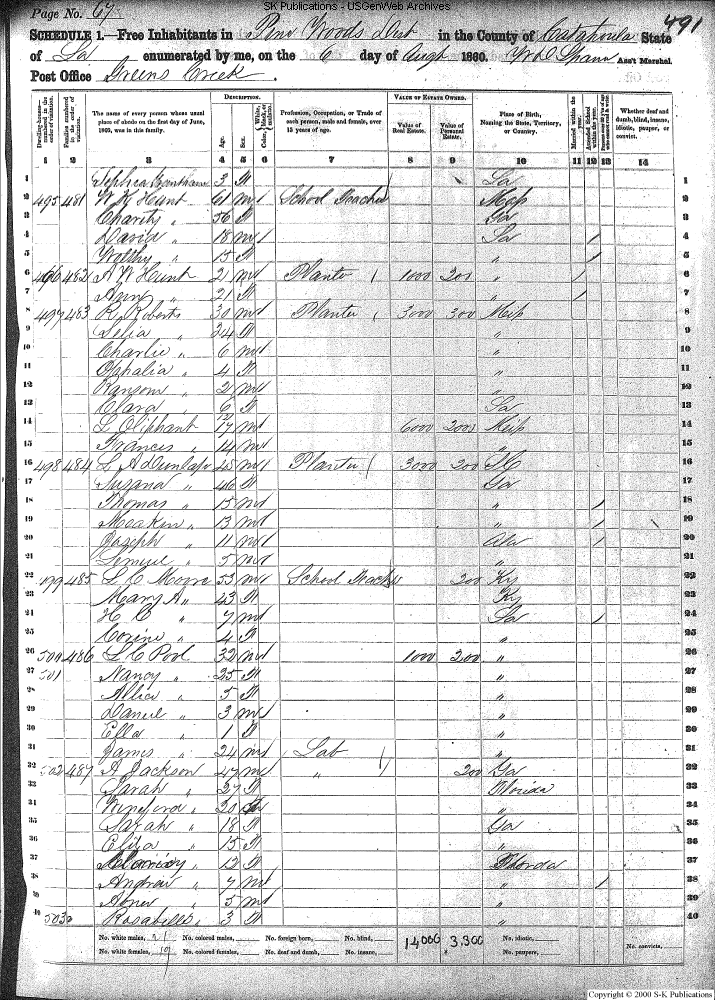 SK Publications - USGenWeb Archives
Page No. 67 491
SCHEDULE 1.—Free Inhabitants in Pine Woods Dist in the County of Catahoula State
of La enumerated by me, on the 6 day of Augt 1860. Ass't Marshal.
Post Office Greens Creek.
Dwelling-houses— numbered in the order of visitation.
Families numbered in the order of visitation.
The name of every person whose usual place of abode on the first day of June, 1860, was in this family.
DESCRIPTION.
Age.
Sex.
Color, White, black, or mulatto.
Profession, Occupation, or Trade of each person, male and female, over 15 years of age.
VALUE OF ESTATE OWNED.
Value of Real Estate.
Value of Personal Estate.
Place of Birth, Naming the State, Territory, or Country.
Married within the year.
Attended School within the year.
Whether deaf and dumb, blind, insane, idiotic, pauper, or convict.
1 2 3 4 5 6 7 8 9 10 11 12 13 14
1 3 f La 1
2 495 481 W H Hunt 61 m School Teacher Miss 2
3 Charity " 56 f Ga 3
4 David " 18 m La / 4
5 " 15 f " / 5
6 496 482 A W Hunt 21 m Planter 1000 200 " / 6
7 Ann " 21 f " / 7
8 497 483 R Roberts 30 m Planter 3000 300 Miss 8
9 Selia " 24 f " 9
10 Charlie " 6 m " 10
11 Ophalia " 4 f " 11
12 Ransom " 2 m " 12
13 Clara " 6/12 f La 13
14 L Oliphant 17 m 6000 2000 Miss 14
15 Francis " 14 m " 15
16 498 484 L A Dunlap 45 m Planter 3000 200 SC 16
17 Susana " 46 f Ga 17
18 Thomas " 15 m " / 18
19 Meakin " 13 m " / 19
20 Joseph " 11 m Ala / 20
21 Limuel " 5 m " 21
22 499 485 L C Moore 53 m School Teacher 200 Ky 22
23 Mary A " 43 f Ky 23
24 H C " 7 m La / 24
25 Corine " 4 f " 25
26 500 486 L C Pool 32 m 1000 200 " 26
27 501 Nancy " 25 f " 27
28 Allice " 5 f " 28
29 Daniel " 3 m " 29
30 Ella " 1 f " 30
31 James " 24 m Lab " 31
32 502 487 A Jackson 47 m " 200 Ga 32
33 Sarah " 27 f Florida 33
34 " 20 " 34
35 Sarah " 18 f Ga 35
36 Eliza " 15 f " 36
37 " 13 f Florda 37
38 Andrew " 7 m " / 38
39 Abner " 5 m " 39
40 503 Rosabelle " 3 f " 40
No. white males, 21 No. colored males, No. foreign born, No. blind, 14000 3,300 No. idiotic,
No. white females, 19 No. colored females, No. deaf and dumb, No. insane, No. paupers, No. convicts,
Copyright © 2000 S-K Publications